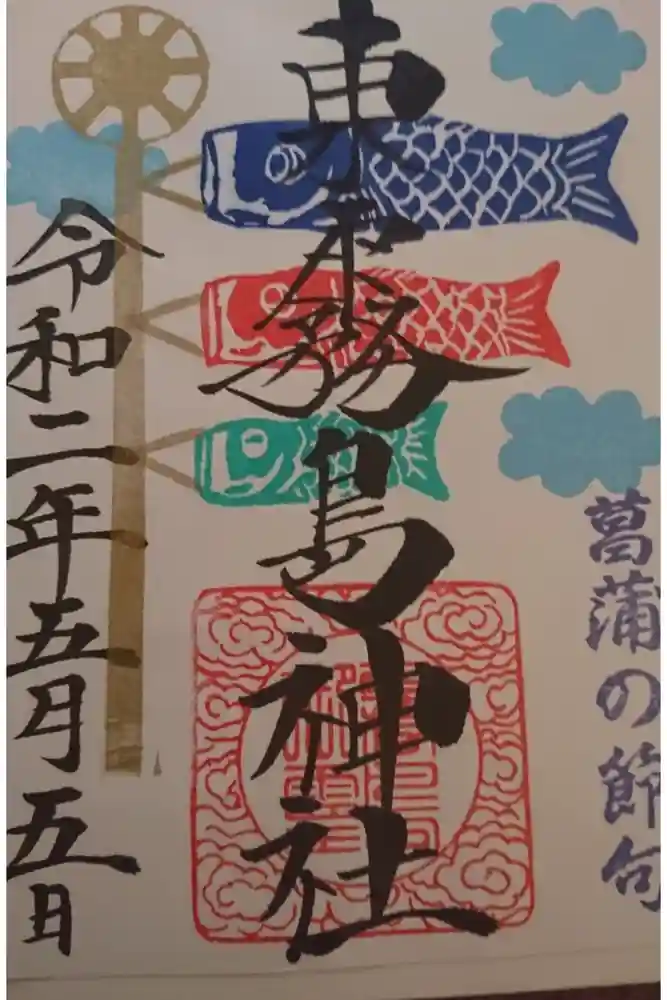 菖蒲の節句
東霧島神社
令和二年五月五日